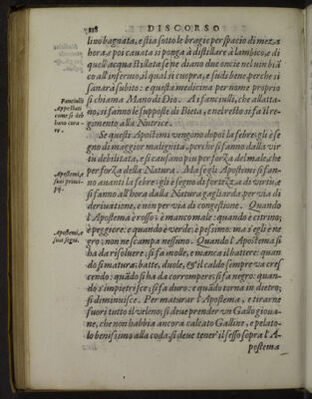 DISCORSO
lino bagnata, e stia sotto le bragie per spacio di mez'ha
hora; a poi cauata si ponga à distillare à lambico; e di
quell'acqua stillata se ne diano due oncie nel vin biã
co all'infermo, il qual si cuopra, e sudi bene, perche si
sanarà subito: e questa medicina per nome proprio
si chiama Mano de Dio. A i fanciulli, che allatta-
no, si fanno le supposte di Bieta, e nel resto si fà il re-
gimento alla Nutrice.
Fanciulli
Appestati
come si deb
bano cura-
re.
Se questi Apostemi vengono dopò la febre, gli è se
gno di maggior malignità, perche si fanno dalla vir
tù debilitata, e si causano piu per forza del male, che
per forza della Natura. Ma se gli Apostemi si fan-
no auanti la febre; gli è segno di fortezza di virtù, e
si fanno all'hora dalla Natura gagliarda per via di
deriuatione, e non per via di congestione. Quando
l'Apostema è rosso, è manco male: quando è citrino,
è peggiore: e quando è verde, è pessimo: ma s'egli è ne
gro; non ne scampa nessuno. Quando l'Apostema si
hà da risoluere; si fà molle, e manca il battere: quan
do si matura; batte, duole, & il caldo sẽpre va cres
cendo: quãdo si hà da corrompere; si fà negro: quan-
do s'impetrisce; si fà duro: e quãdo torna in dietro;
si diminuisce. Per maturar l'Apostema, e tirarne
fuori tutto il veleno; si deue prender vn Gallo gioua-
ne, che non habbia ancora calcato Galline, e pelato-
lo benissimo alla coda, si deue tener il sesso sopra l'A-
postema
Apostemi, e
suoi princi-
pij.
Apostemi, e
suoi segni.